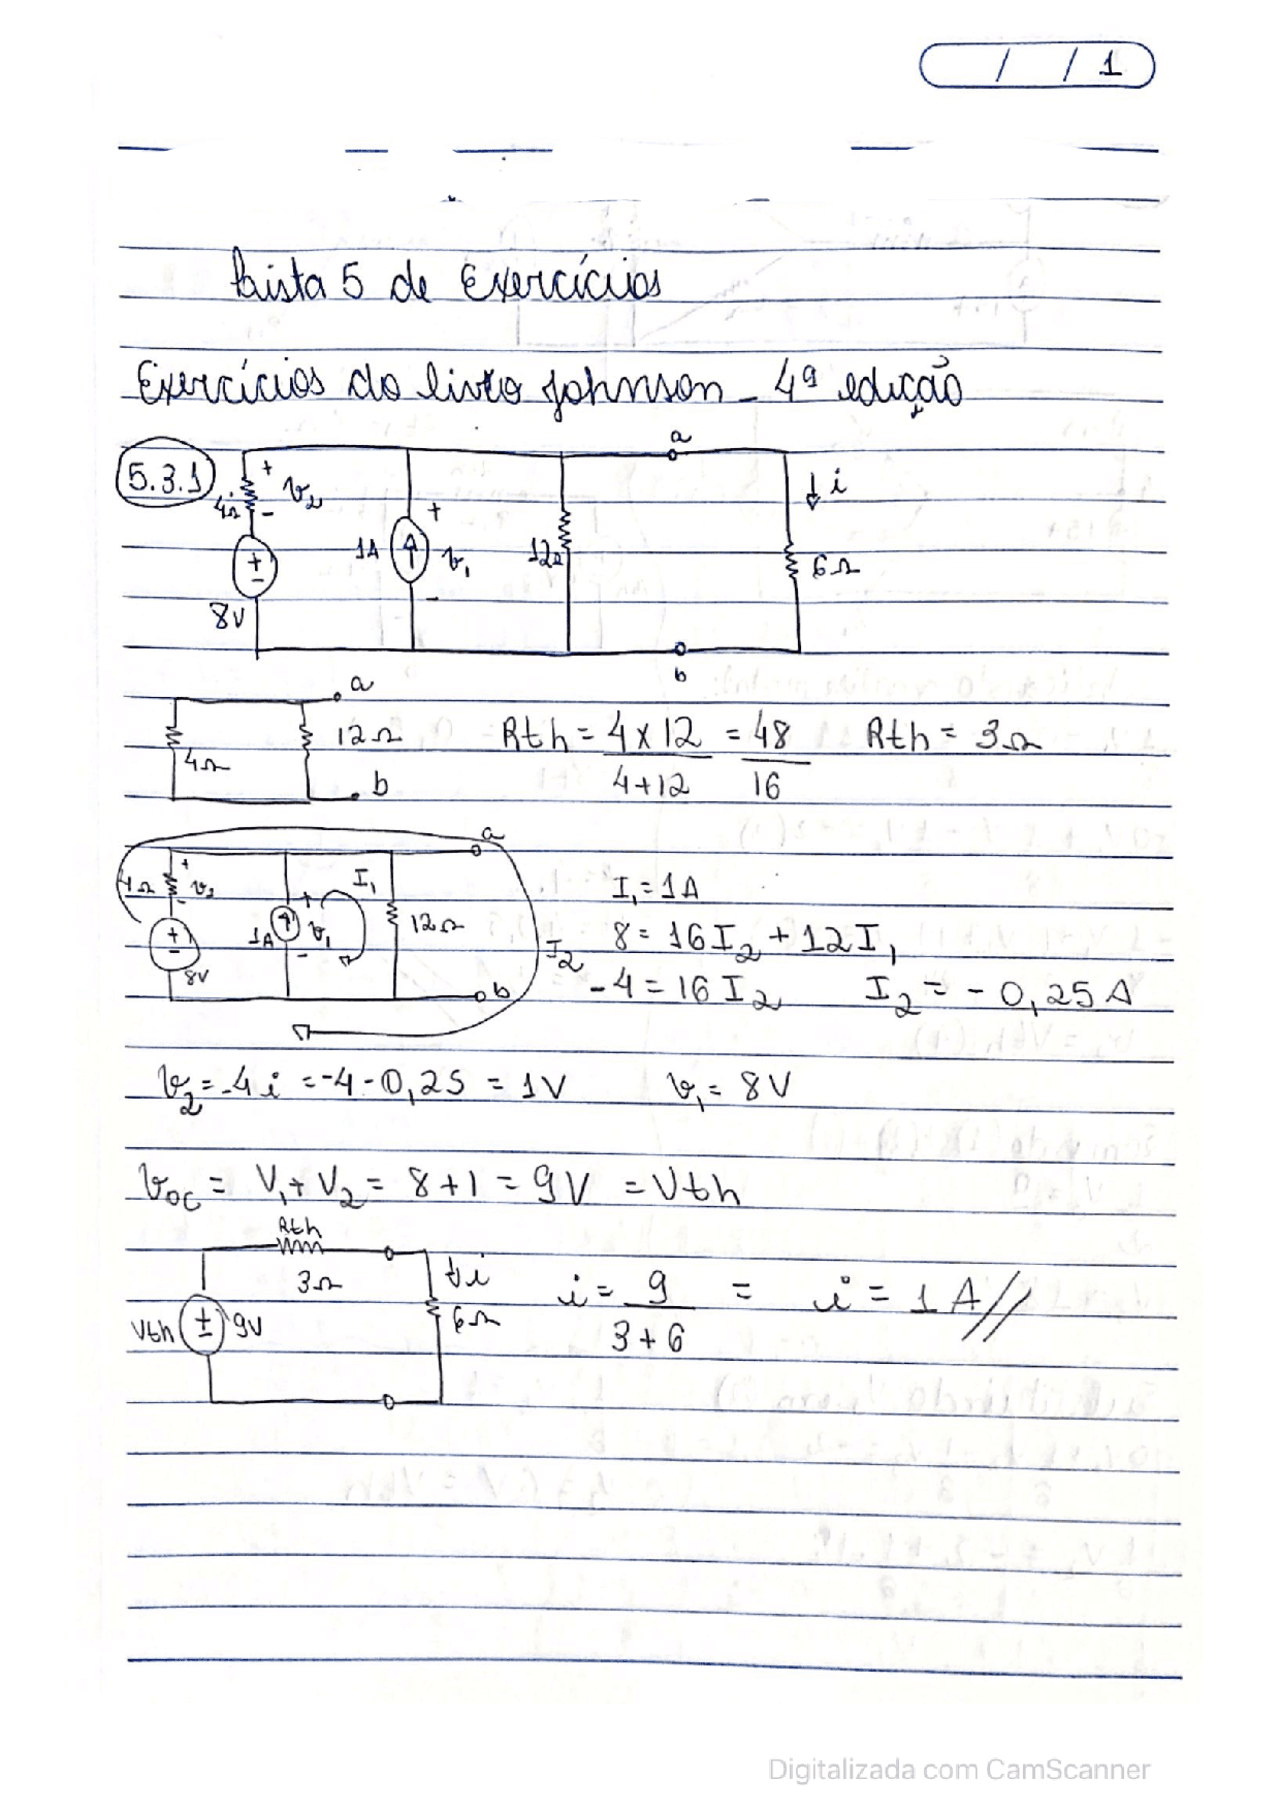 / / 1
Lista 5 de Exercícios
Exercícios do livro Johnson - 4ª edição
5.3.1
a
+ v₂ -
4Ω
+ -
8V
1A
+ v₁ -
12Ω
↓ i
6Ω
b
a
4Ω
12Ω
b
Rth = 4 x 12 / 4+12 = 48 / 16 Rth = 3Ω
a
4Ω
+ v₂ -
+ -
8V
1A
+ v₁ -
I₁
12Ω
I₂
b
I₁ = 1A
8 = 16I₂ + 12I₁
-4 = 16I₂ I₂ = -0,25A
v₂ = -4i = -4-0,25 = 1V v₁ = 8V
voc = V₁+V₂ = 8+1 = 9V = Vth
Rth
3Ω
Vth + - 9V
↓i
6Ω
i = 9 / 3+6 = i = 1A//
Digitalizada com CamScanner